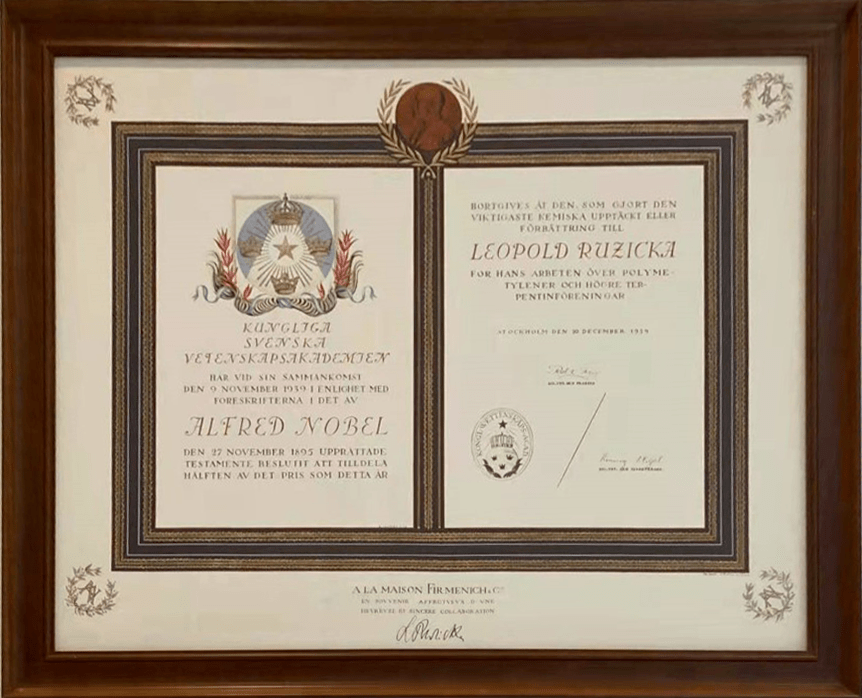 KUNGLIGA
SVENSKA
VETENSKAPSAKADEMIEN
HAR VID SIN SAMMANKOMST
DEN 9 NOVEMBER 1939 I ENLIGHET MED
FORESKRIFTERNA I DET AV
ALFRED NOBEL
DEN 27 NOVEMBER 1895 UPPRÄTTADE
TESTAMENTE BESLUTIT ATT TILLDELA
HÄLFTEN AV DET PRIS SOM DETTA ÅR
BORTGIVES ÅT DEN, SOM GJORT DEN
VIKTIGASTE KEMISKA UPPTÄCKT ELLER
FÖRBÄTTRING TILL
LEOPOLD RUŽICKA
FÖR HANS ARBETEN ÖVER POLYME-
TYLENER OCH HÖGRE TER-
PENTINFÖRENINGAR
STOCKHOLM DEN 10 DECEMBER 1939
KONGL. VETENSKAPS. ACAD.
A LA MAISON FIRMENICH & Co
EN SOUVENIR AFFECTUEUX D'UNE
HEUREUSE ET SINCERE COLLABORATION
L Ruzicka